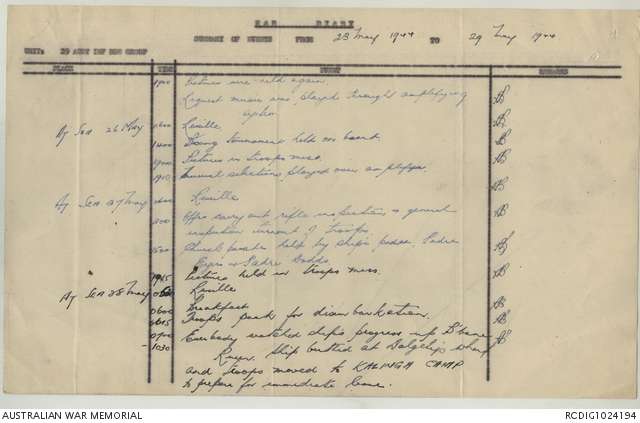 WAR DIARY
SUMMARY OF EVENTS FROM 23 May 1944 TO 29 May 1944
UNIT: 29 AUST INF BDE GROUP
PLACE TIME EVENT REMARKS
1900 Pictures were held again.
Request music was played through amplifying
system
At Sea 26 May Reveille
1400 Boxing tournament held on board
1900 Pictures in troops mess.
Musical selections played over amplifier.
At Sea 27 May Reveille
Offrs carry out rifle inspection & general
inspection of troops
Church parade help by ship's padre, Padre
& Padre Dodds
1915 Pictures held in troops mess.
At Sea 28 May Reveille
0600 Breakfast
0615 Troops pack for disembarkation.
0700 Everybody watched ships progress up B'bane
- 1030 River. Ship berthed at Dalgetys wharf
and troops moved to KALINGA CAMP
to prepare for immediate leave.
AUSTRALIAN WAR MEMORIAL RCDIG1024194